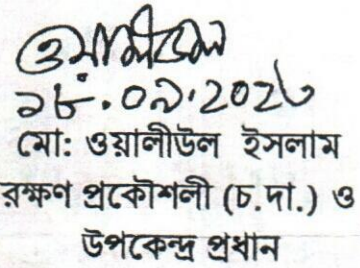 ওয়ালীউল
১৮.০৯.২০২৬
মো: ওয়ালীউল ইসলাম
রক্ষণ প্রকৌশলী (চ.দা.) ও
উপকেন্দ্র প্রধান